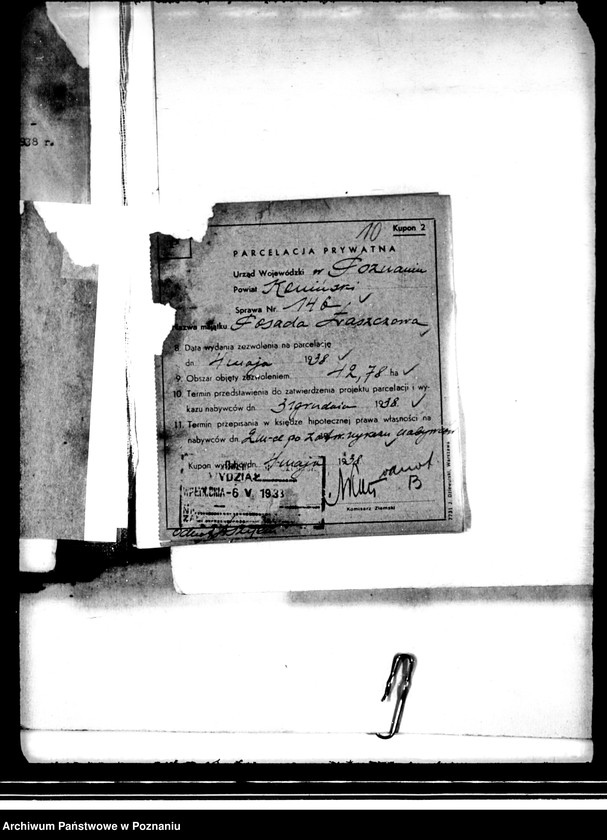 938 r.
10 Kupon 2
PARCELACJA PRYWATNA
Urząd Wojewódzki w Poznaniu
Powiat Koniński
Sprawa Nr. 146
Nazwa majątku Posada Łaszczowa
8. Data wydania zezwolenia na parcelację
dn. 4 maja 1938
9. Obszar objęty zezwoleniem. 42,78 ha
10. Termin przedstawienia do zatwierdzenia projektu parcelacji i wy-
kazu nabywców dn. 31 grudnia 1938
11. Termin przepisania w księdze hipotecznej prawa własności na
nabywców dn. 2 m-ce po zatw. wykazu nabywców
Kupon wysłano dn. maja 1938
WYDZIAŁ
-6 V. 1938
B
Komisarz Ziemski
Archiwum Państwowe w Poznaniu